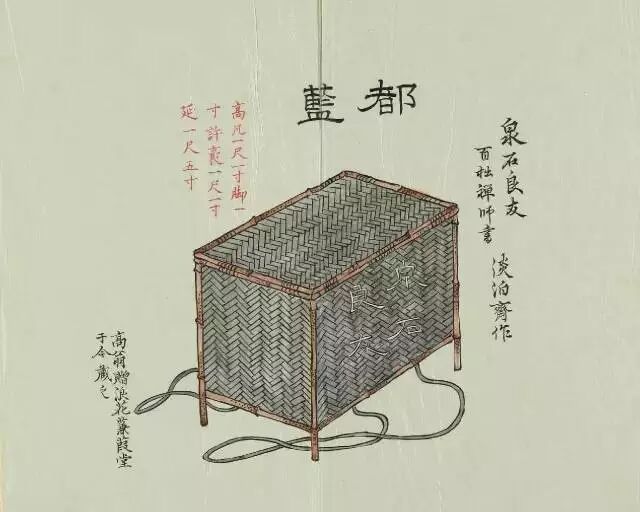 泉石良友
百拙禅師書
淡泊齋作
都藍
高凡一尺一寸脚一
寸許袤一尺一寸
延一尺五寸
泉石
良友
高翁贈浪花蒹葭堂
于今蔵之